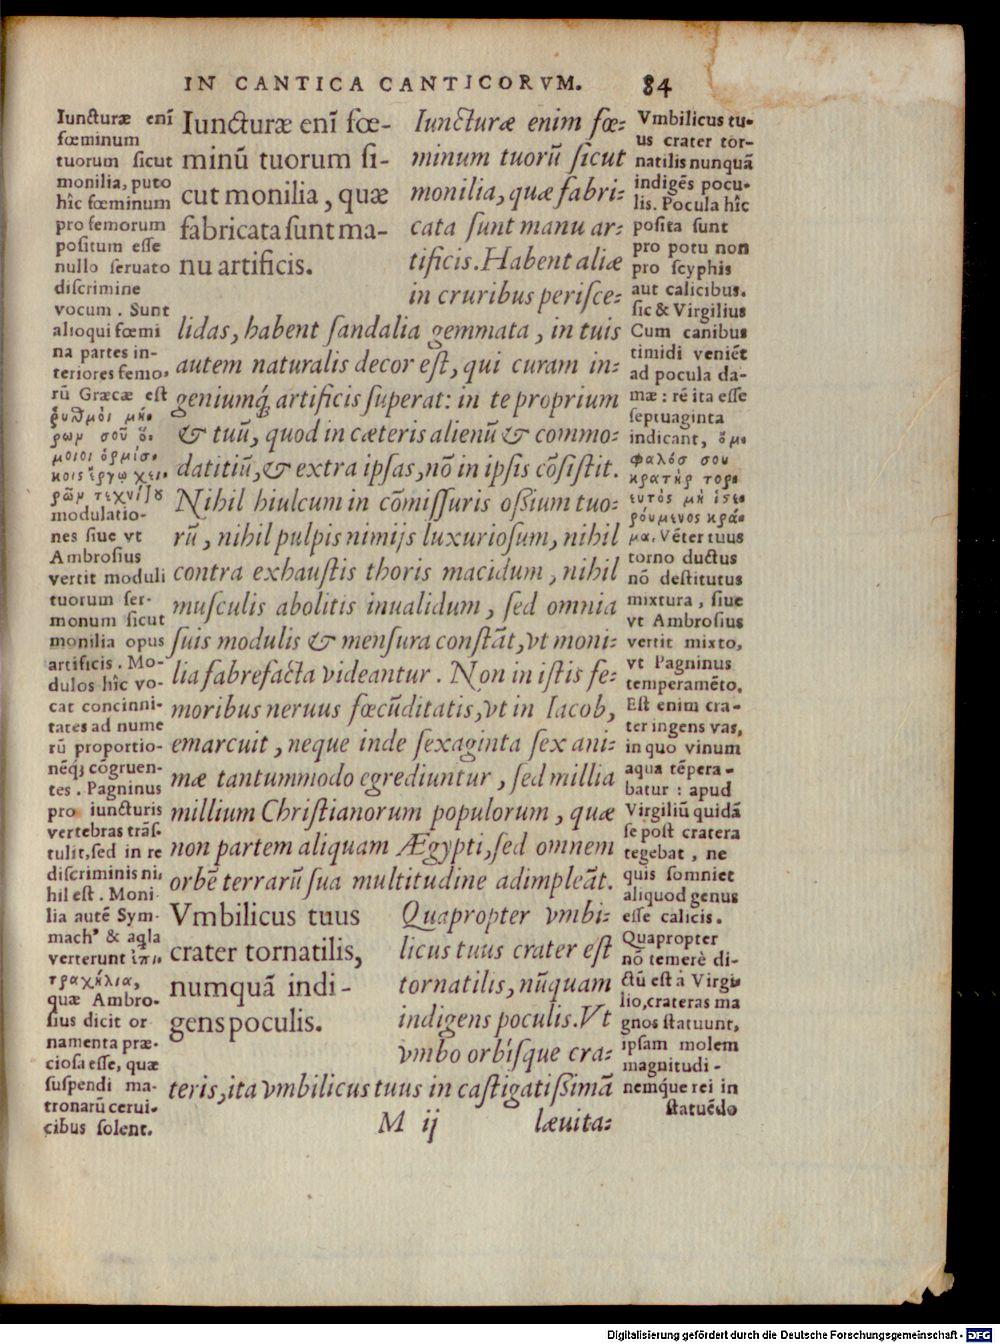 IN CANTICA CANTICORVM. 84
Iuncturæ enĩ
fœminum
tuorum ſicut
monilia, puto
hîc fœminum
pro femorum
poſitum eſſe
nullo ſeruato
diſcrimine
vocum. Sunt
alioqui fœmi
na partes in-
teriores femo-
rũ Græcæ eſt
ῥυθμοὶ μη-
ρωμ σοῦ ὅ-
μοιοι ὁρμίσ-
κοις ἔργω χει-
ρῶμ τεχνίτου
modulatio-
nes ſiue vt
Ambroſius
vertit moduli
tuorum fer-
monum ſicut
monilia opus
artificis. Mo-
dulos hîc vo-
cat concinni-
tates ad nume
rũ proportio-
nẽq́; cõgruen-
tes. Pagninus
pro iuncturis
vertebras trãſ-
tulit, ſed in re
diſcriminis ni-
hil eſt. Moni
lia autẽ Sym-
machꝰ & aq̃la
verterunt ἐπι-
τραχήλια,
quæ Ambro-
ſius dicit or
namenta præ-
cioſa eſſe, quæ
ſuſpendi ma-
tronarũ cerui-
cibus ſolent.
Iuncturæ enĩ fœ-
minũ tuorum ſi-
cut monilia, quæ
fabricata ſunt ma-
nu artificis.
Iuncturæ enim fœ-
minum tuorũ ſicut
monilia, quæ fabri-
cata ſunt manu ar-
tificis. Habent aliæ
in cruribus periſce-
lidas, habent ſandalia gemmata, in tuis
autem naturalis decor eſt, qui curam in-
geniumq́; artificis ſuperat: in te proprium
& tuũ, quod in cæteris alienũ & commo-
datitiũ, & extra ipſas, nõ in ipſis cõſiſtit.
Nihil hiulcum in cõmiſſuris oſſium tuo-
rũ, nihil pulpis nimijs luxurioſum, nihil
contra exhauſtis thoris macidum, nihil
muſculis abolitis inualidum, ſed omnia
ſuis modulis & menſura conſtãt, vt moni-
lia fabrefacta videantur. Non in iſtis fe-
moribus neruus fœcũditatis, vt in Iacob,
emarcuit, neque inde ſexaginta ſex ani-
mæ tantummodo egrediuntur, ſed millia
millium Chriſtianorum populorum, quæ
non partem aliquam Ægypti, ſed omnem
orbẽ terrarũ ſua multitudine adimpleãt.
Vmbilicus tuus
crater tornatilis,
numquã indi-
gens poculis.
Quapropter vmbi-
licus tuus crater eſt
tornatilis, nũquam
indigens poculis. Vt
vmbo orbíſque cra-
teris, ita vmbilicus tuus in caſtigatiſſimã
M ij læuita-
Vmbilicus tu-
us crater tor-
natilis nunquã
indigẽs pocu-
lis. Pocula hîc
poſita ſunt
pro potu non
pro ſcyphis
aut calicibus.
ſic & Virgilius
Cum canibus
timidi veniẽt
ad pocula da-
mæ: rẽ ita eſſe
ſeptuaginta
indicant, ὄμ-
φαλόσ σου
κρατὴρ τορ-
ευτὸς μὴ ὑστε-
ρούμενος κρά-
μα. Vẽter tuus
torno ductus
nõ deſtitutus
mixtura, ſiue
vt Ambroſius
vertit mixto,
vt Pagninus
temperamẽto.
Eſt enim cra-
ter ingens vas,
in quo vinum
aqua tẽpera-
batur: apud
Virgiliũ quidã
ſe poſt cratera
tegebat, ne
quis ſomniet
aliquod genus
eſſe calicis.
Quapropter
nõ temerè di-
ctũ eſt à Virgi-
lio, crateras ma
gnos ſtatuunt,
ipſam molem
magnitudi-
nemq́ue rei in
ſtatuẽdo
Digitalisierung gefördert durch die Deutsche Forschungsgemeinschaft - DFG